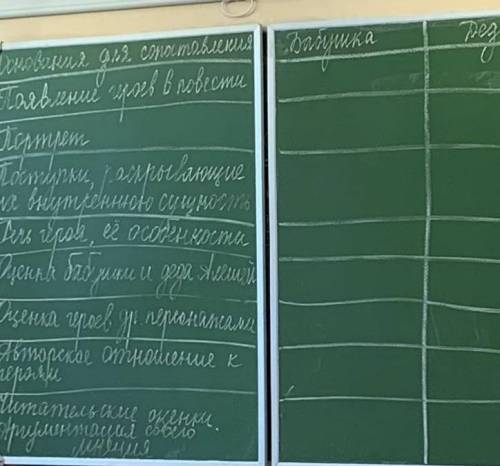 Основания для сопоставления
Появление героев в повести
Портрет
Поступки, раскрывающие
их внутреннюю сущность
Речь героя, её особенности
Оценка бабушки и деда Алёшей
Оценка героев др. персонажами
Авторское отношение к
героям
Читательские оценки.
Аргументация своего
мнения
Бабушка